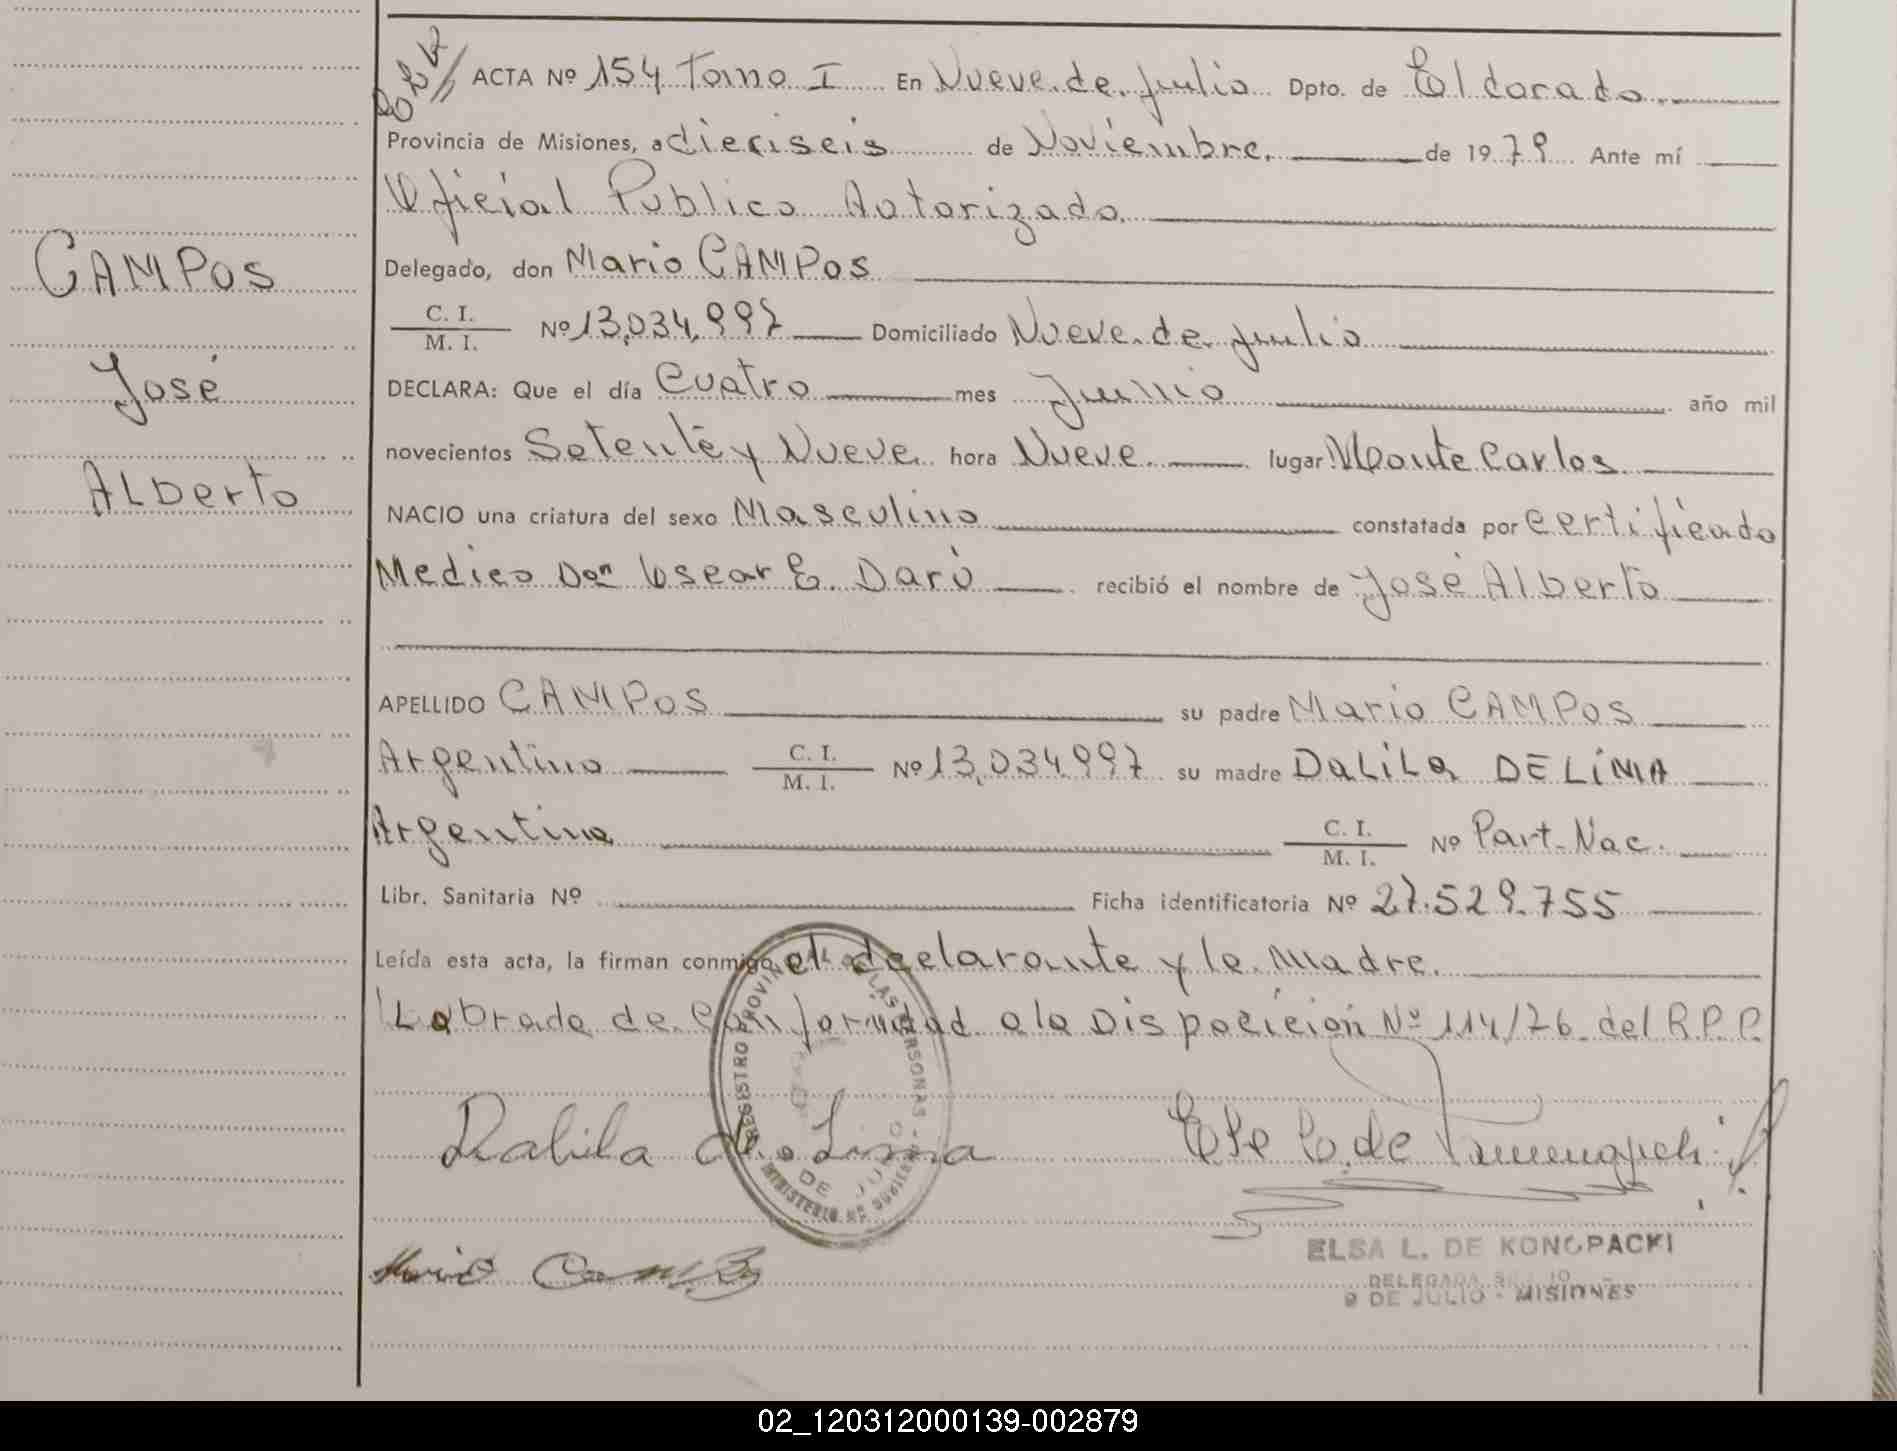 ACTA Nº 154 Tomo I En Nueve de Julio Dpto. de Eldorado.
Provincia de Misiones, a dieciseis de Noviembre. de 1979 Ante mí
Oficial Publico Autorizado.
Delegado, don Mario CAMPOS
C. I.
M. I.
Nº 13.034.997 Domiciliado Nueve de Julio
DECLARA: Que el día Cuatro mes Junio año mil
novecientos Setenta y Nueve hora Nueve lugar Monte Carlos
NACIO una criatura del sexo Masculino constatada por certificado
Medico Don Oscar E. Daró recibió el nombre de José Alberto
APELLIDO CAMPOS su padre Mario CAMPOS
Argentino C. I.
M. I.
Nº 13.034.997 su madre DALILA DE LIMA
Argentina C. I.
M. I.
Nº Part. Nac.
Libr. Sanitaria Nº Ficha identificatoria Nº 27.529.755
Leída esta acta, la firman conmigo el declarante y la Madre.
Labrada de Conformidad a la Disposición Nº 114/76 del R.P.P.
CAMPOS
José
Alberto
REGISTRO PROVINCIAL DE LAS PERSONAS
MINISTERIO DE GOBIERNO
DE JULIO
Dalila de Lima
Mario Campos
ELSA L. DE KONOPACKI
DELEGADA
9 DE JULIO - MISIONES
02_120312000139-002879